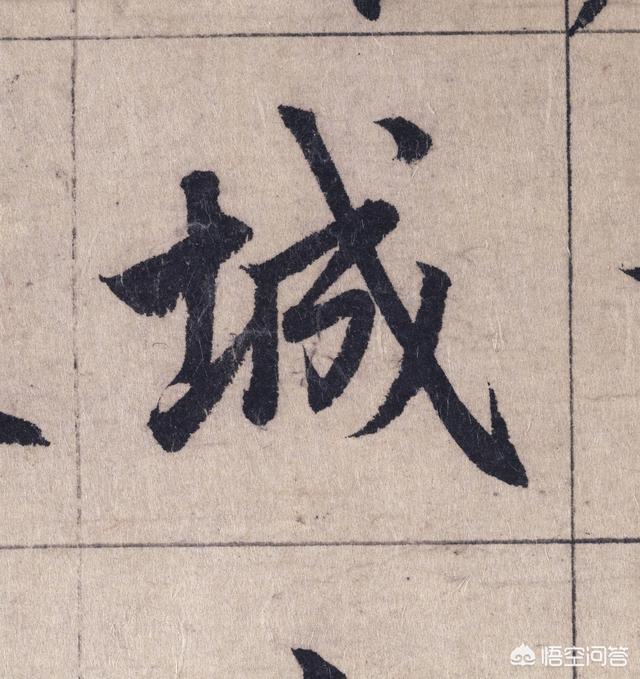 城
悟空问答